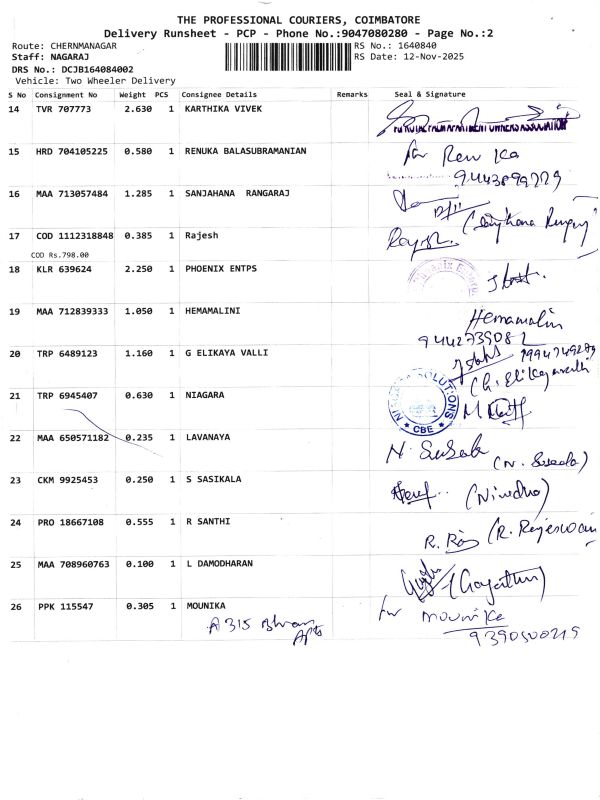 THE PROFESSIONAL COURIERS, COIMBATORE
Delivery Runsheet - PCP - Phone No.:9047080280 - Page No.:2
Route: CHERNMANAGAR
RS No.: 1640840
Staff: NAGARAJ
RS Date: 12-Nov-2025
DRS No.: DCJB164084002
Vehicle: Two Wheeler Delivery
S No Consignment No Weight PCS Consignee Details Remarks Seal & Signature
14 TVR 707773 2.630 1 KARTHIKA VIVEK
15 HRD 704105225 0.580 1 RENUKA BALASUBRAMANIAN for Renuka
9443899729
16 MAA 713057484 1.285 1 SANJAHANA RANGARAJ
17 COD 1112318848 0.385 1 Rajesh
COD Rs.798.00
18 KLR 639624 2.250 1 PHOENIX ENTPS
19 MAA 712839333 1.050 1 HEMAMALINI Hemamalin
9442739082
20 TRP 6489123 1.160 1 G ELIKAYA VALLI
21 TRP 6945407 0.630 1 NIAGARA
CBE
22 MAA 650571182 0.235 1 LAVANAYA
23 CKM 9925453 0.250 1 S SASIKALA (Nivedha)
24 PRO 18667108 0.555 1 R SANTHI (R. Rajeswari
25 MAA 708960763 0.100 1 L DAMODHARAN (Gayathri)
26 PPK 115547 0.305 1 MOUNIKA for Mounika
A 315
Apts
9390500219